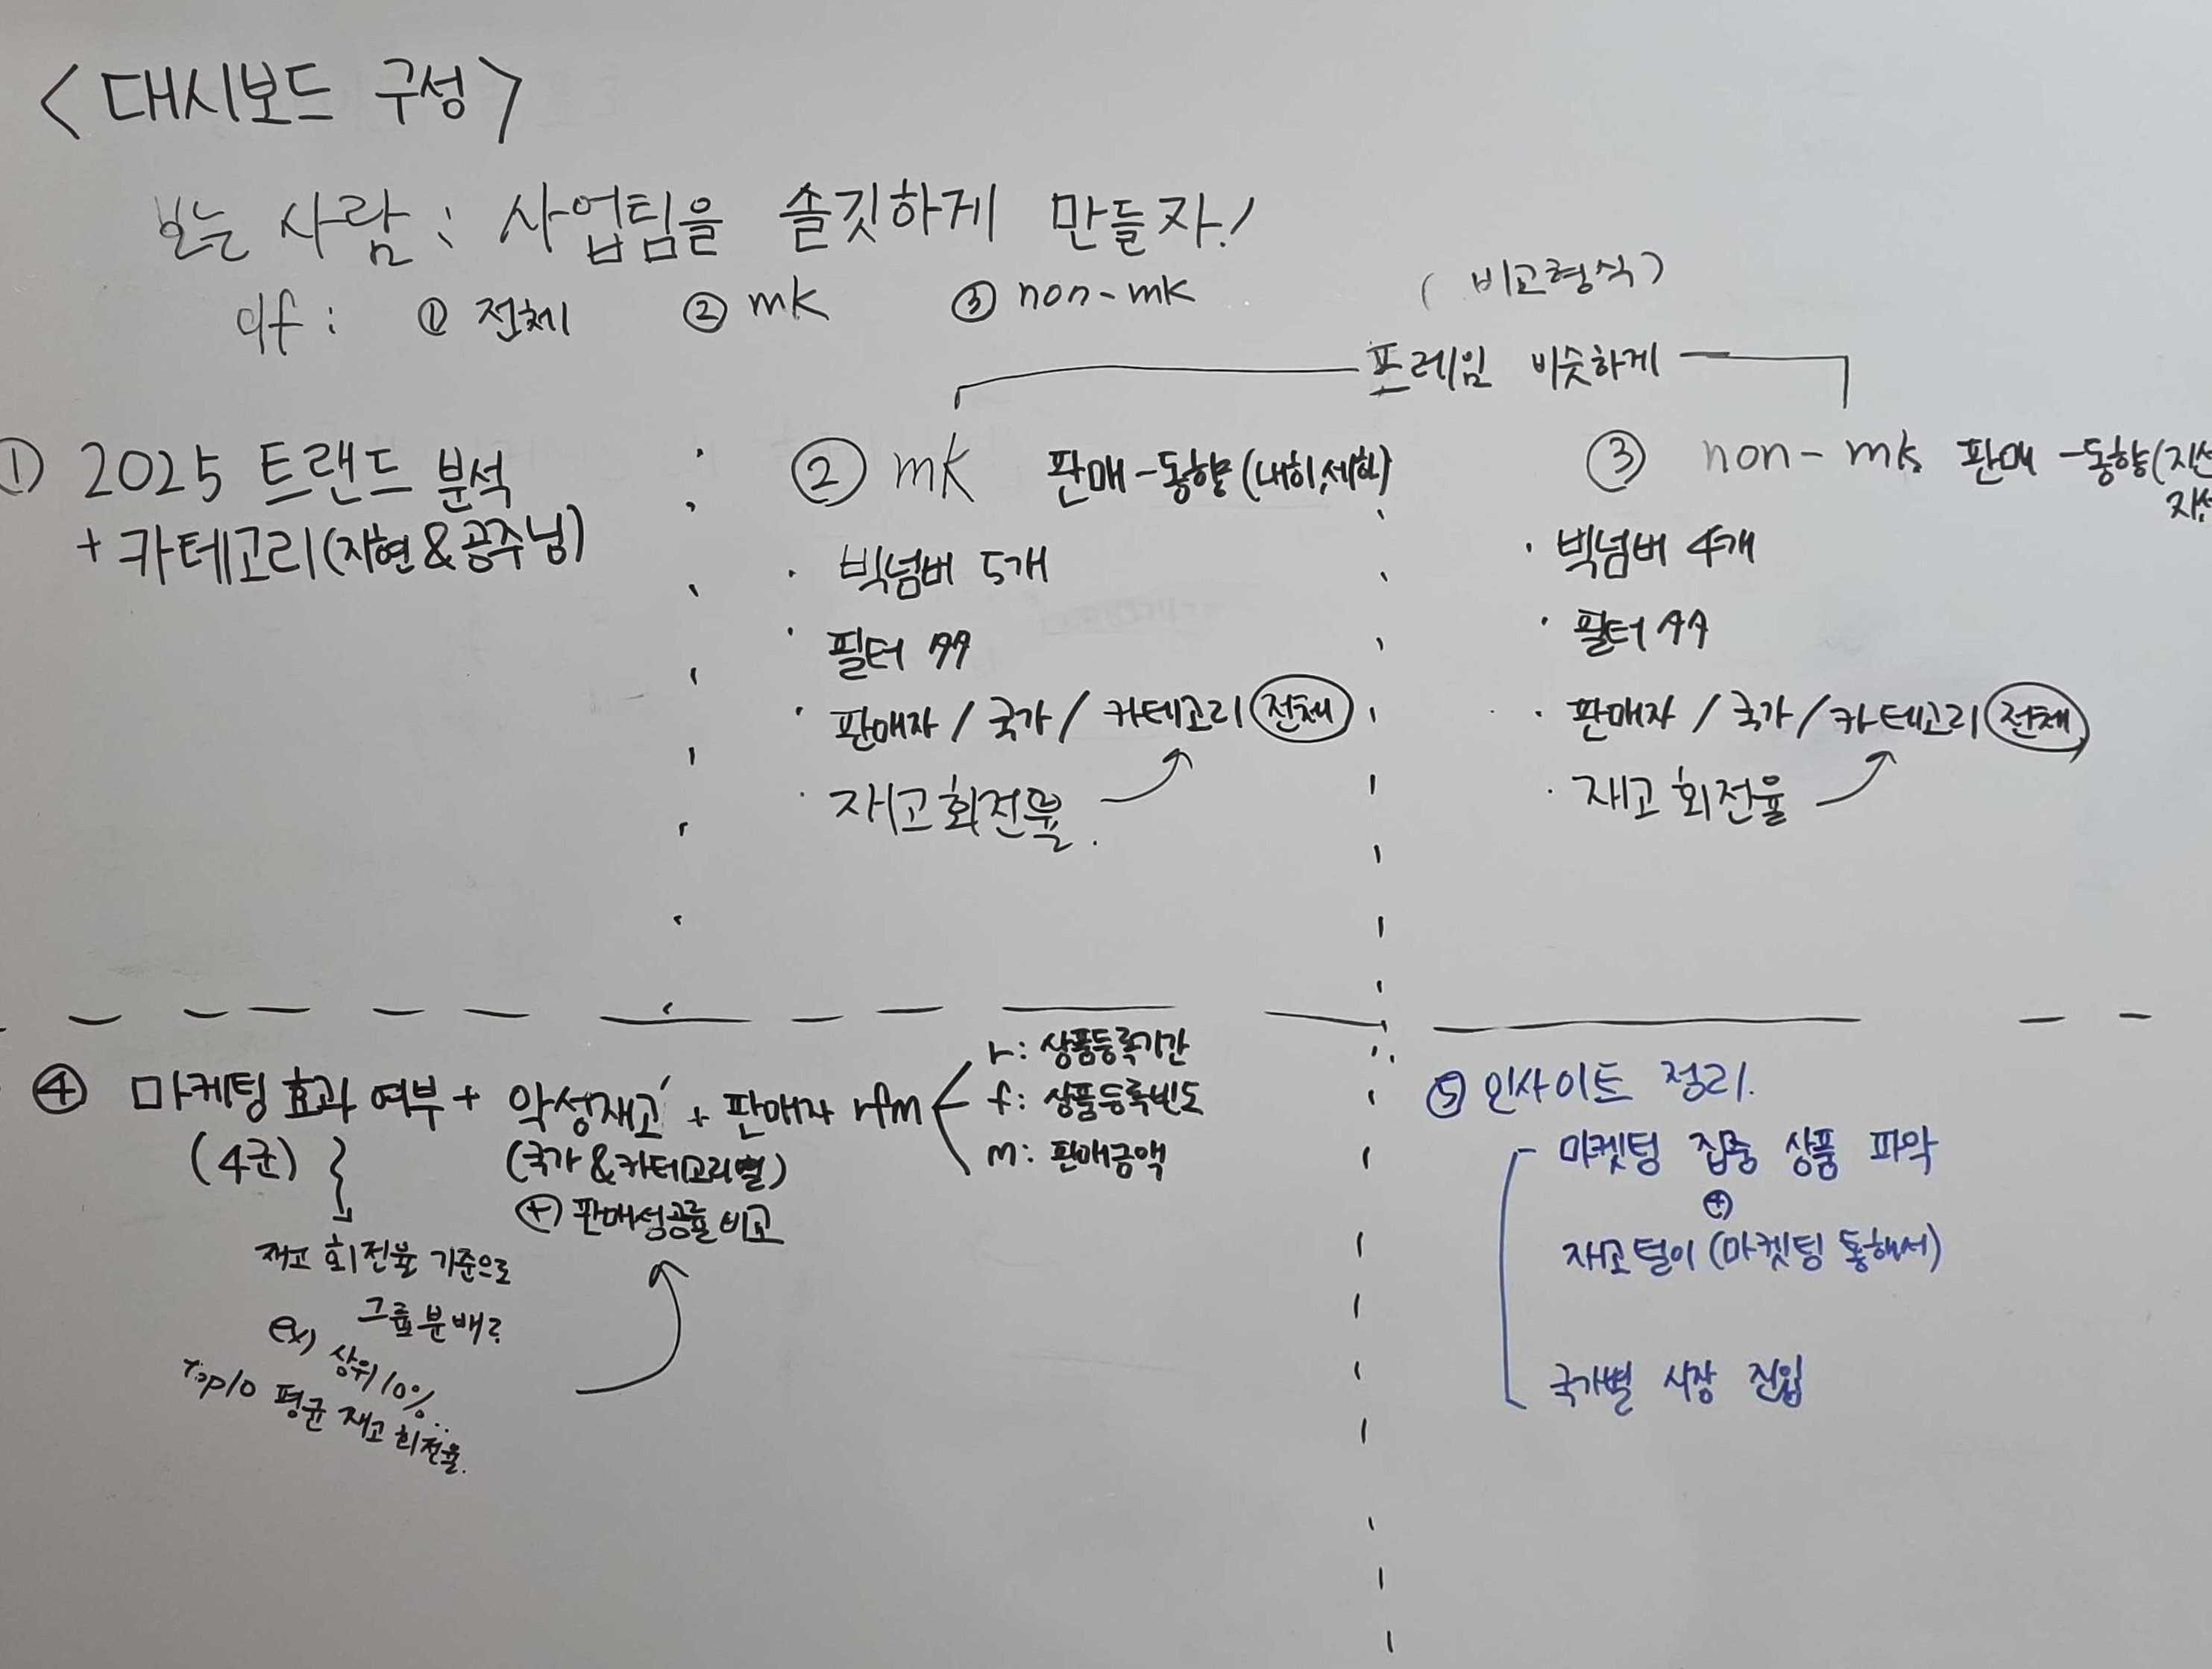 <대시보드 구성>
보는 사람 : 사업팀을 솔깃하게 만들자!
df : ① 전체 ② mk ③ non-mk
(비교형식)
프레임 비슷하게
① 2025 트랜드 분석
+ 카테고리(지현&공주님)
② mk 판매-동향(내히,세희)
· 빅넘버 5개
· 필터
· 판매자 / 국가 / 카테고리 전체
· 재고회전율.
③ non-mk 판매-동향
· 빅넘버 4개
· 필터
· 판매자 / 국가 / 카테고리 전체
· 재고 회전율
④ 마케팅 효과 여부 + 악성재고 + 판매자 rfm
(4군)
재고 회전율 기준으로
그룹분배?
ex) 상위10%...
Top10 평균 재고 회전율.
(국가&카테고리별)
(+) 판매성공률 비교
r : 상품등록기간
f : 상품등록빈도
m : 판매금액
⑤ 인사이트 정리.
마켓팅 집중 상품 파악
(+)
재고털이 (마켓팅 통해서)
국가별 시장 진입